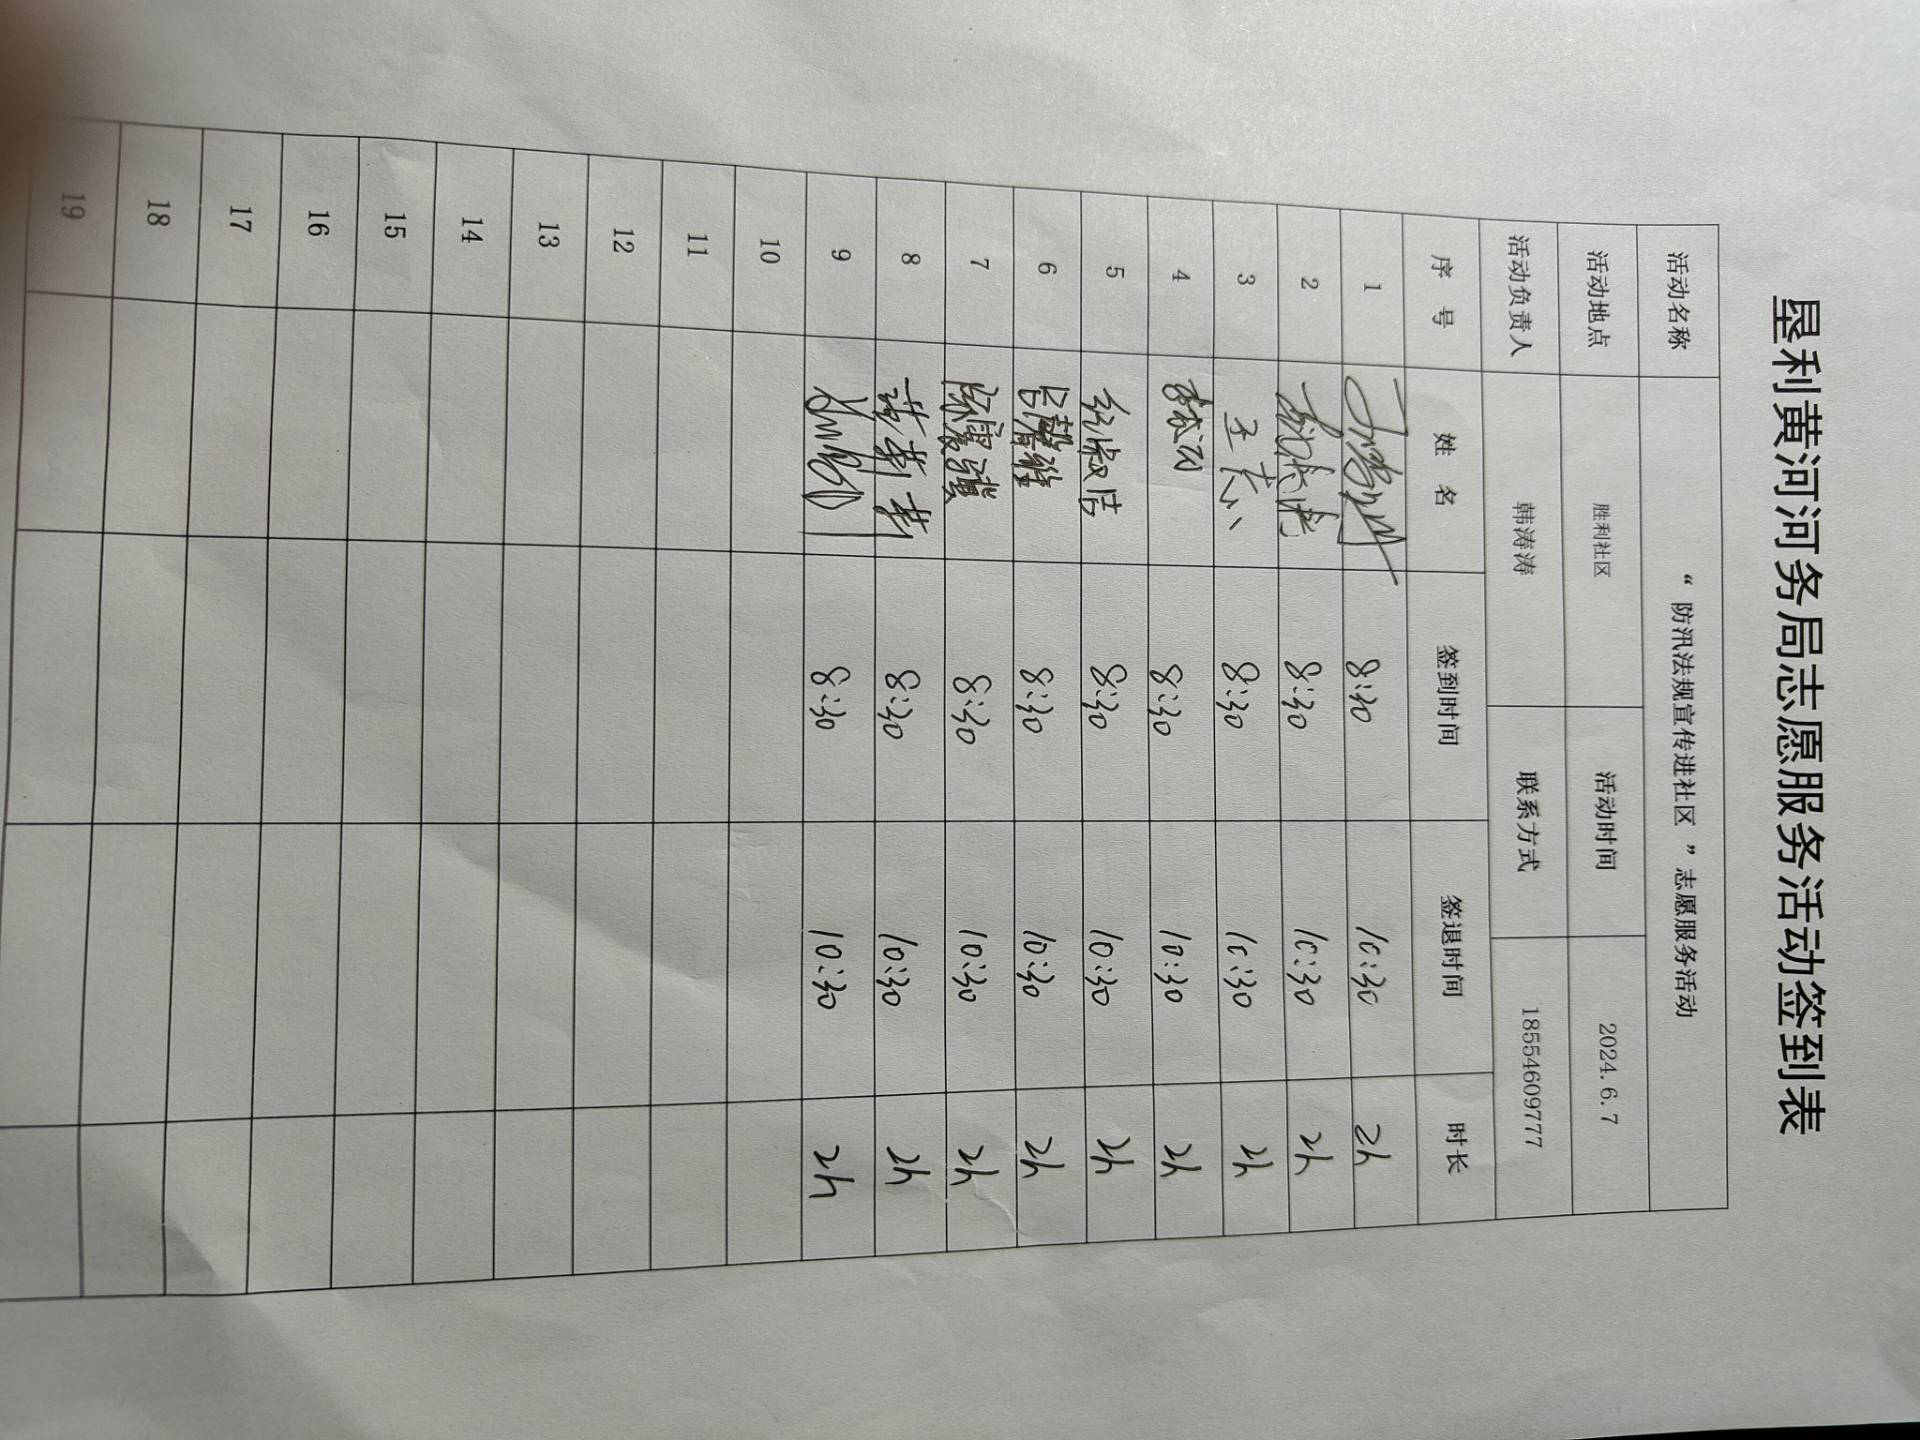 垦利黄河河务局志愿服务活动签到表
活动名称 “防汛法规宣传进社区”志愿服务活动
活动地点 胜利社区 活动时间 2024.6.7
活动负责人 韩涛涛 联系方式 18554609777
序 号 姓 名 签到时间 签退时间 时长
1 8:30 10:30 2h
2 8:30 10:30 2h
3 8:30 10:30 2h
4 8:30 10:30 2h
5 纪淑洁 8:30 10:30 2h
6 吕馨雅 8:30 10:30 2h
7 陈震骥 8:30 10:30 2h
8 8:30 10:30 2h
9 8:30 10:30 2h
10
11
12
13
14
15
16
17
18
19